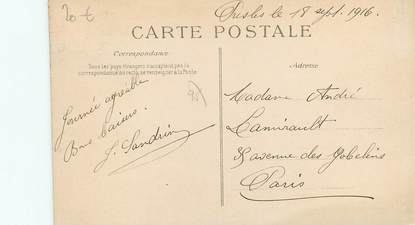 20 €
le 18 sept. 1916.
CARTE POSTALE
Correspondance
Tous les pays étrangers n'acceptent pas la
correspondance au recto, se renseigner à la Poste
Adresse
95
Journée agréable
Bons baisers.
J. Sandrin
Madame André
Lamirault
avenue des Gobelins
Paris